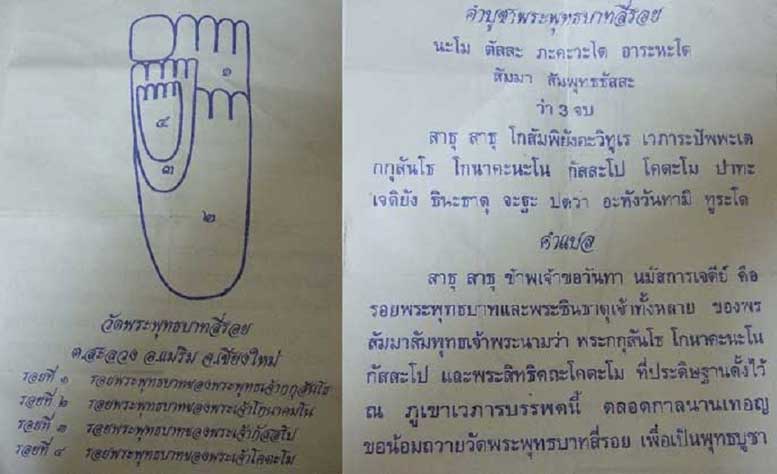 ๑
๔
๓
๒
วัดพระพุทธบาทสี่รอย
ต.สะลวง อ.แมริม จ.เชียงใหม่
รอยที่ ๑ รอยพระพุทธบาทของพระพุทธเจ้ากกุสันโธ
รอยที่ ๒ รอยพระพุทธบาทของพระเจ้าโกนาคมโน
รอยที่ ๓ รอยพระพุทธบาทของพระเจ้ากัสสโป
รอยที่ ๔ รอยพระพุทธบาทของพระเจ้าโคตะโม
คำบูชาพระพุทธบาทสี่รอย
นะโม ตัสสะ ภะคะวะโต อาระหะโต
สัมมา สัมพุทธธัสสะ
ว่า 3 จบ
สาธุ สาธุ โกสัมพิยังอะวิทูเร เวภาระปัพพะเต
กกุสันโธ โกนาคะนะโน กัสสะโป โคตะโม ปาทะ
เจดิยัง ชินะธาตุ จะฐะ ปตวา อะหังวันทามิ ทูระโต
คำแปล
สาธุ สาธุ ข้าพเจ้าขอวันทา นมัสการเจดีย์ คือ
รอยพระพุทธบาทและพระชินธาตุเจ้าทั้งหลาย ของพร
สัมมาสัมพุทธเจ้าพระนามว่า พระกกุสันโธ โกนาคะนะโน
กัสสะโป และพระสิทธิคถะโคตะโม ที่ประดิษฐานตั้งไว้
ณ ภูเขาเวภารบรรพตนี้ ตลอดกาลนานเทอญ
ขอน้อมถวายวัดพระพุทธบาทสี่รอย เพื่อเป็นพุทธบูชา